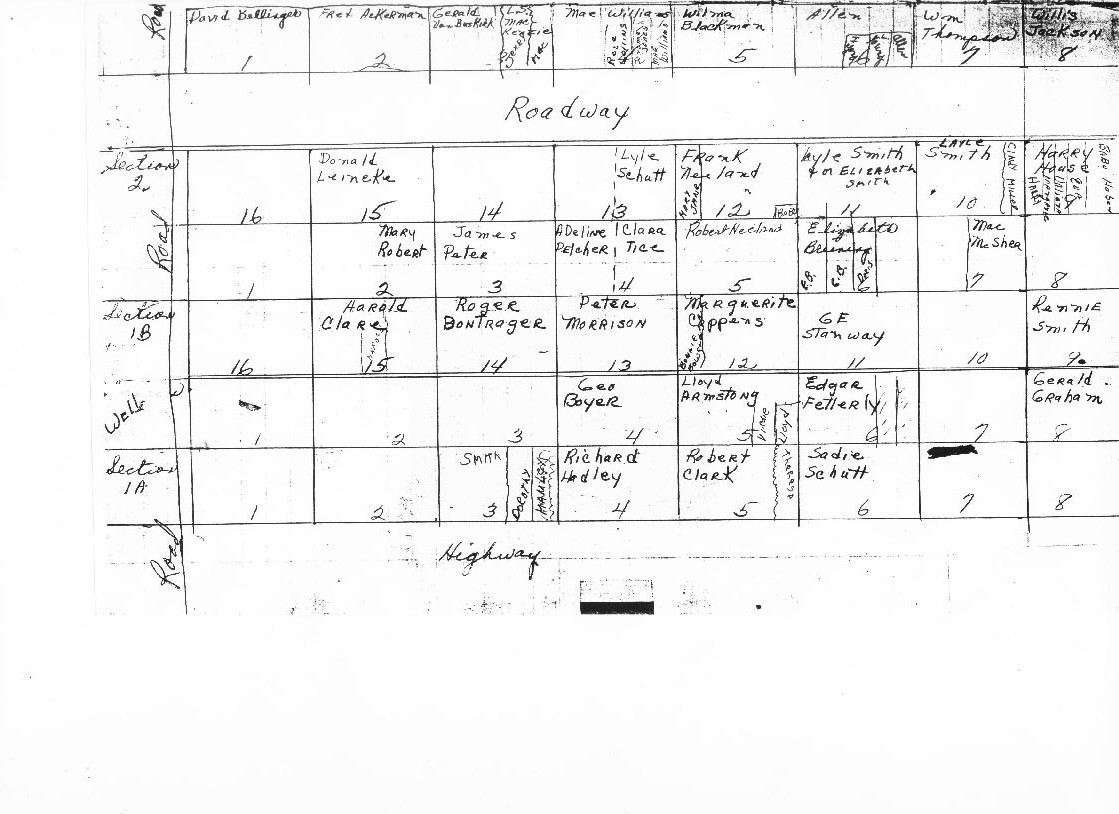 Road
David Bellinger
1
Fred Ackerman
2
Gerald
Van Buskirk
Mac Williams
Wilma
Blackman
5
Allen
Wm
Thompson
7
Willis
Jackson
8
Roadway
Section
2
16
Donald
Leineke
15
14
Lyle
Schutt
13
Frank
Neeland
Mary
Jane
12
Bobo
Lyle Smith
for Elizabeth
Smith
11
Layle
Smith
10
Cindy Miller
Harry
Haas
9
Road
1
Mary
Robert
2
James
Peter
3
Adeline
Pelcher
Clara
Tice
4
Robert Neeland
5
Elizabeth
Breining
Mac
McShea
7
8
Section
1B
16
Harald
Clare
15
Roger
Bontrager
14
Peter
Morrison
13
Marguerite
Coppens
12
GE
Stanway
11
10
Rennie
Smith
9
Well
1
2
3
Geo
Boyer
4
Lloyd
Armstong
5
Lloyd
Edgar
Fetterly
6
7
Gerald
Graham
8
Section
1A
1
2
Smith
3
Dorothy
Richard
Hadley
4
Robert
Clark
5
Theresa
Sadie
Schutt
6
7
8
Road
Highway